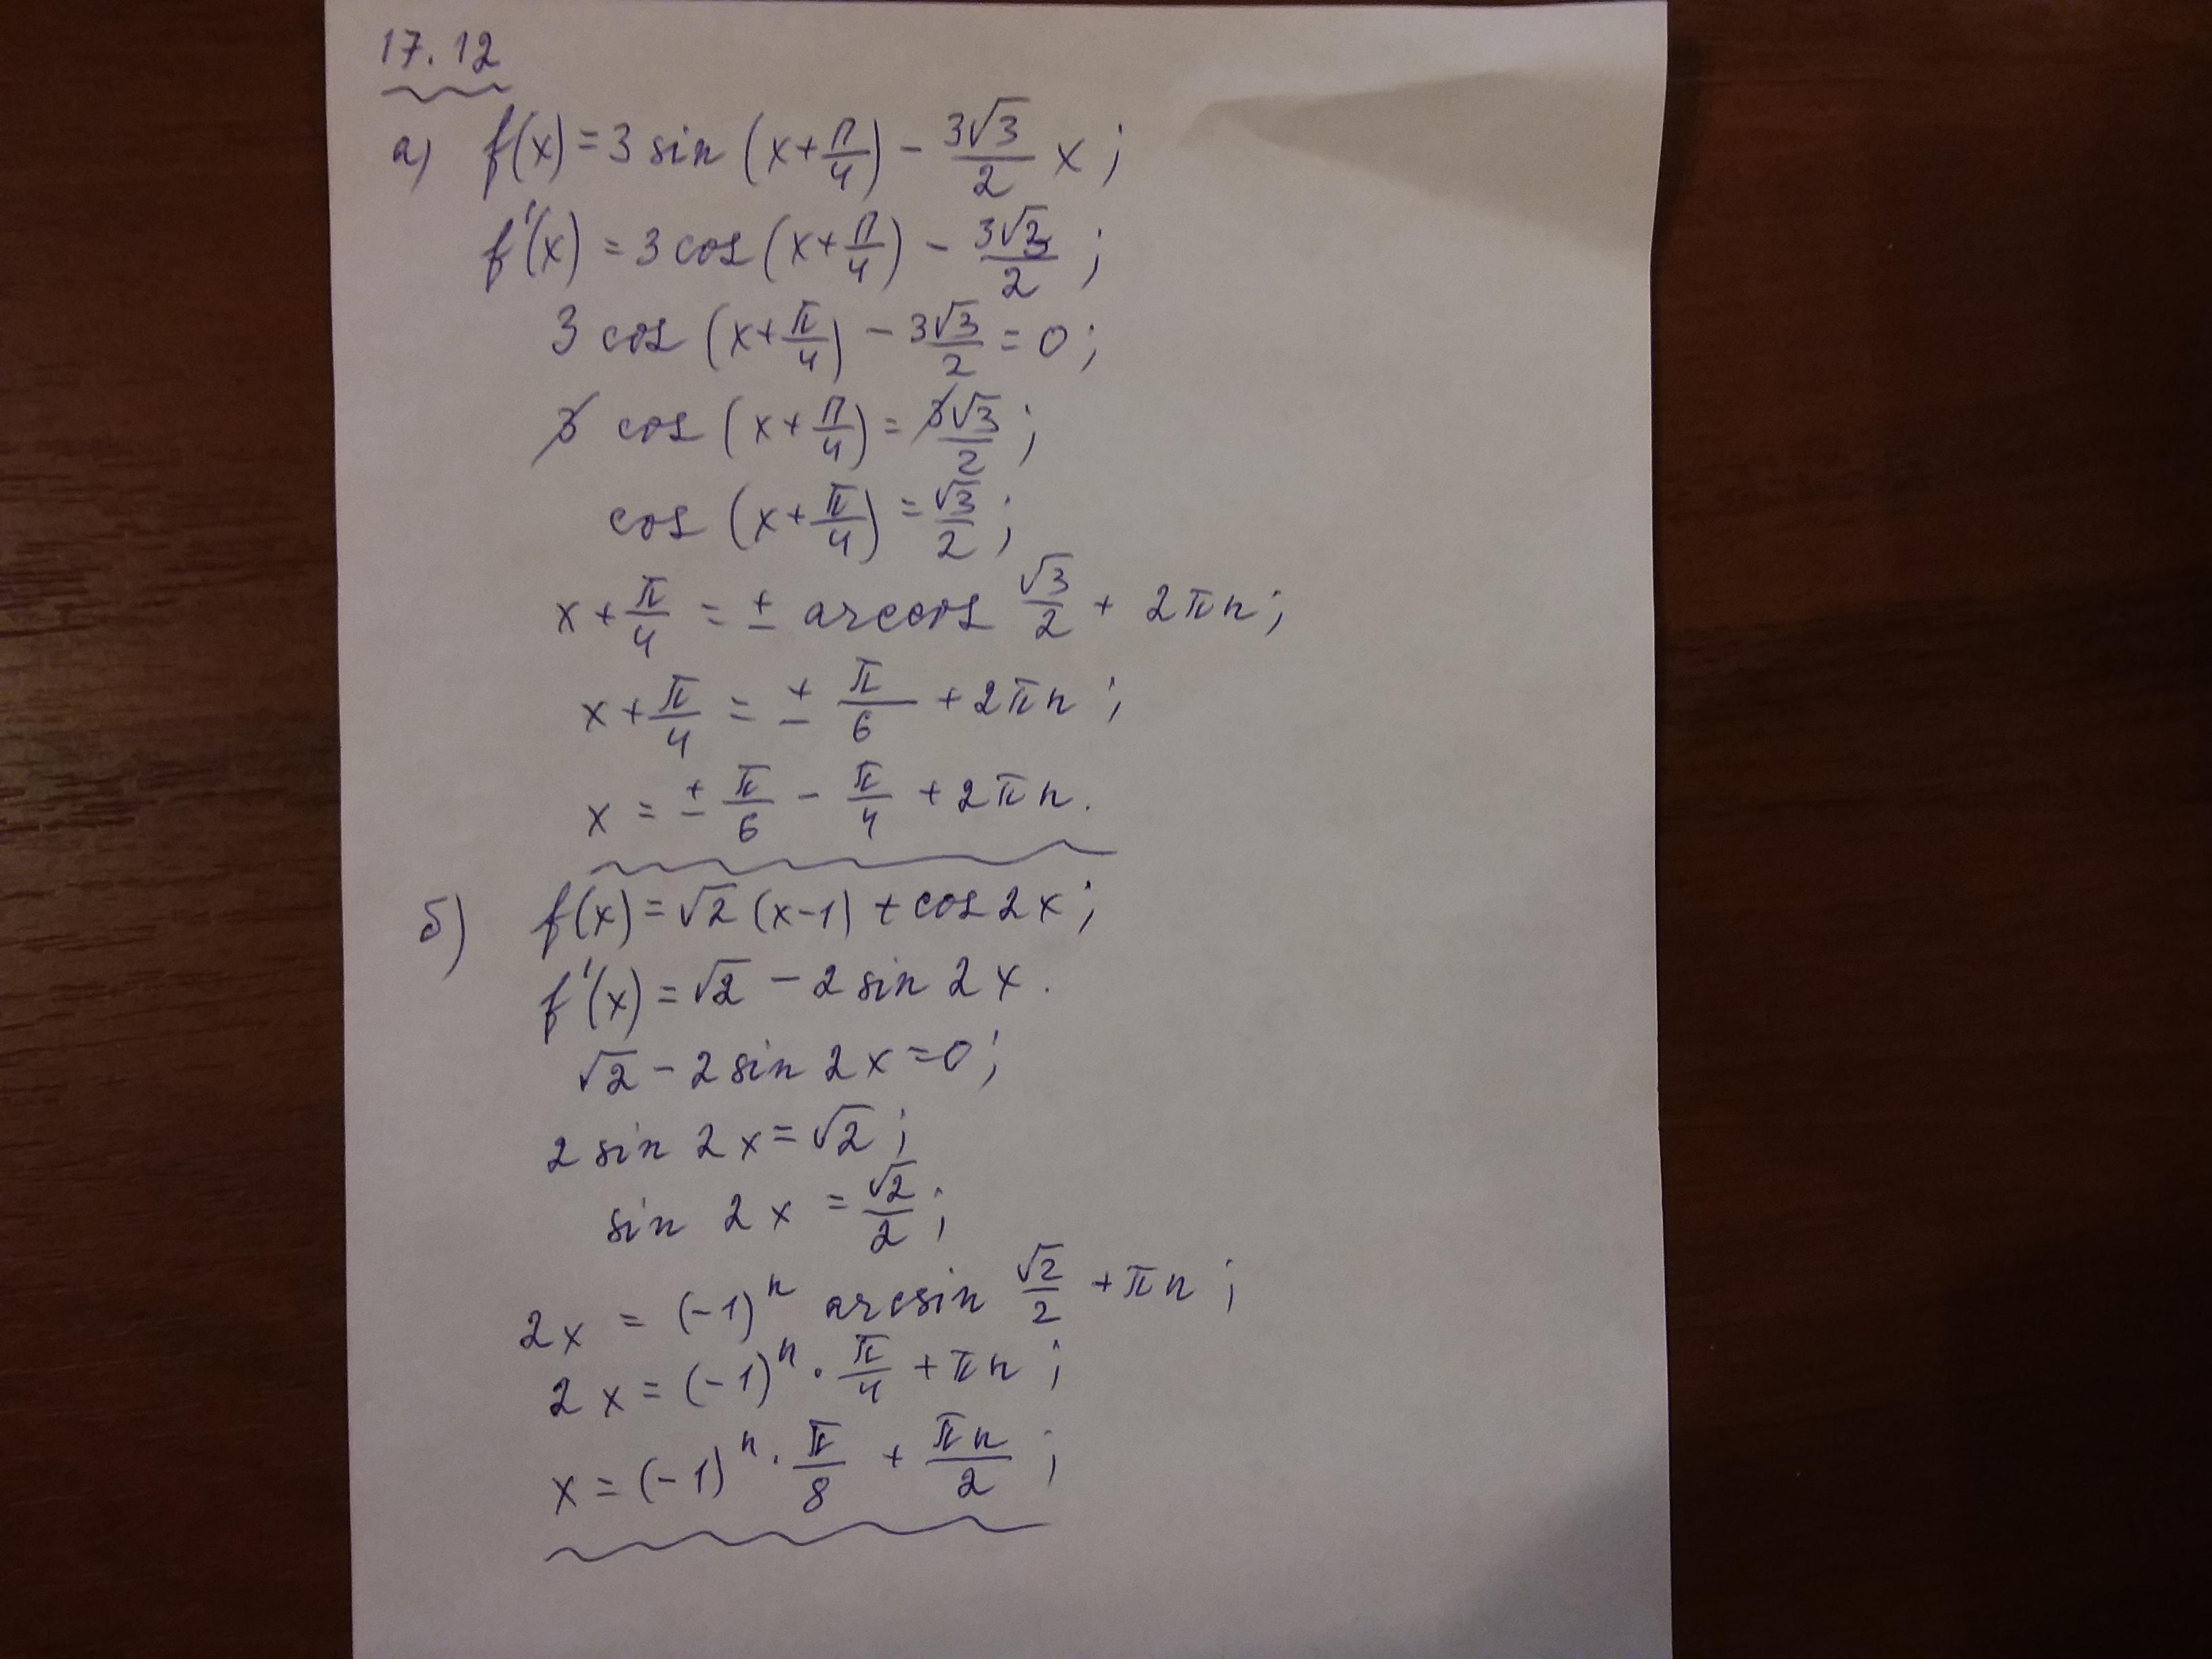 17.12
а) f(x) = 3 sin (x + π/4) − 3√3/2 x;
f'(x) = 3 cos (x + π/4) − 3√3/2;
3 cos (x + π/4) − 3√3/2 = 0;
3 cos (x + π/4) = 3√3/2;
cos (x + π/4) = √3/2;
x + π/4 = ± arccos √3/2 + 2πn;
x + π/4 = ± π/6 + 2πn;
x = ± π/6 − π/4 + 2πn.
б) f(x) = √2 (x−1) + cos 2x;
f'(x) = √2 − 2 sin 2x.
√2 − 2 sin 2x = 0;
2 sin 2x = √2;
sin 2x = √2/2;
2x = (−1)ⁿ arcsin √2/2 + πn;
2x = (−1)ⁿ · π/4 + πn;
x = (−1)ⁿ · π/8 + πn/2;